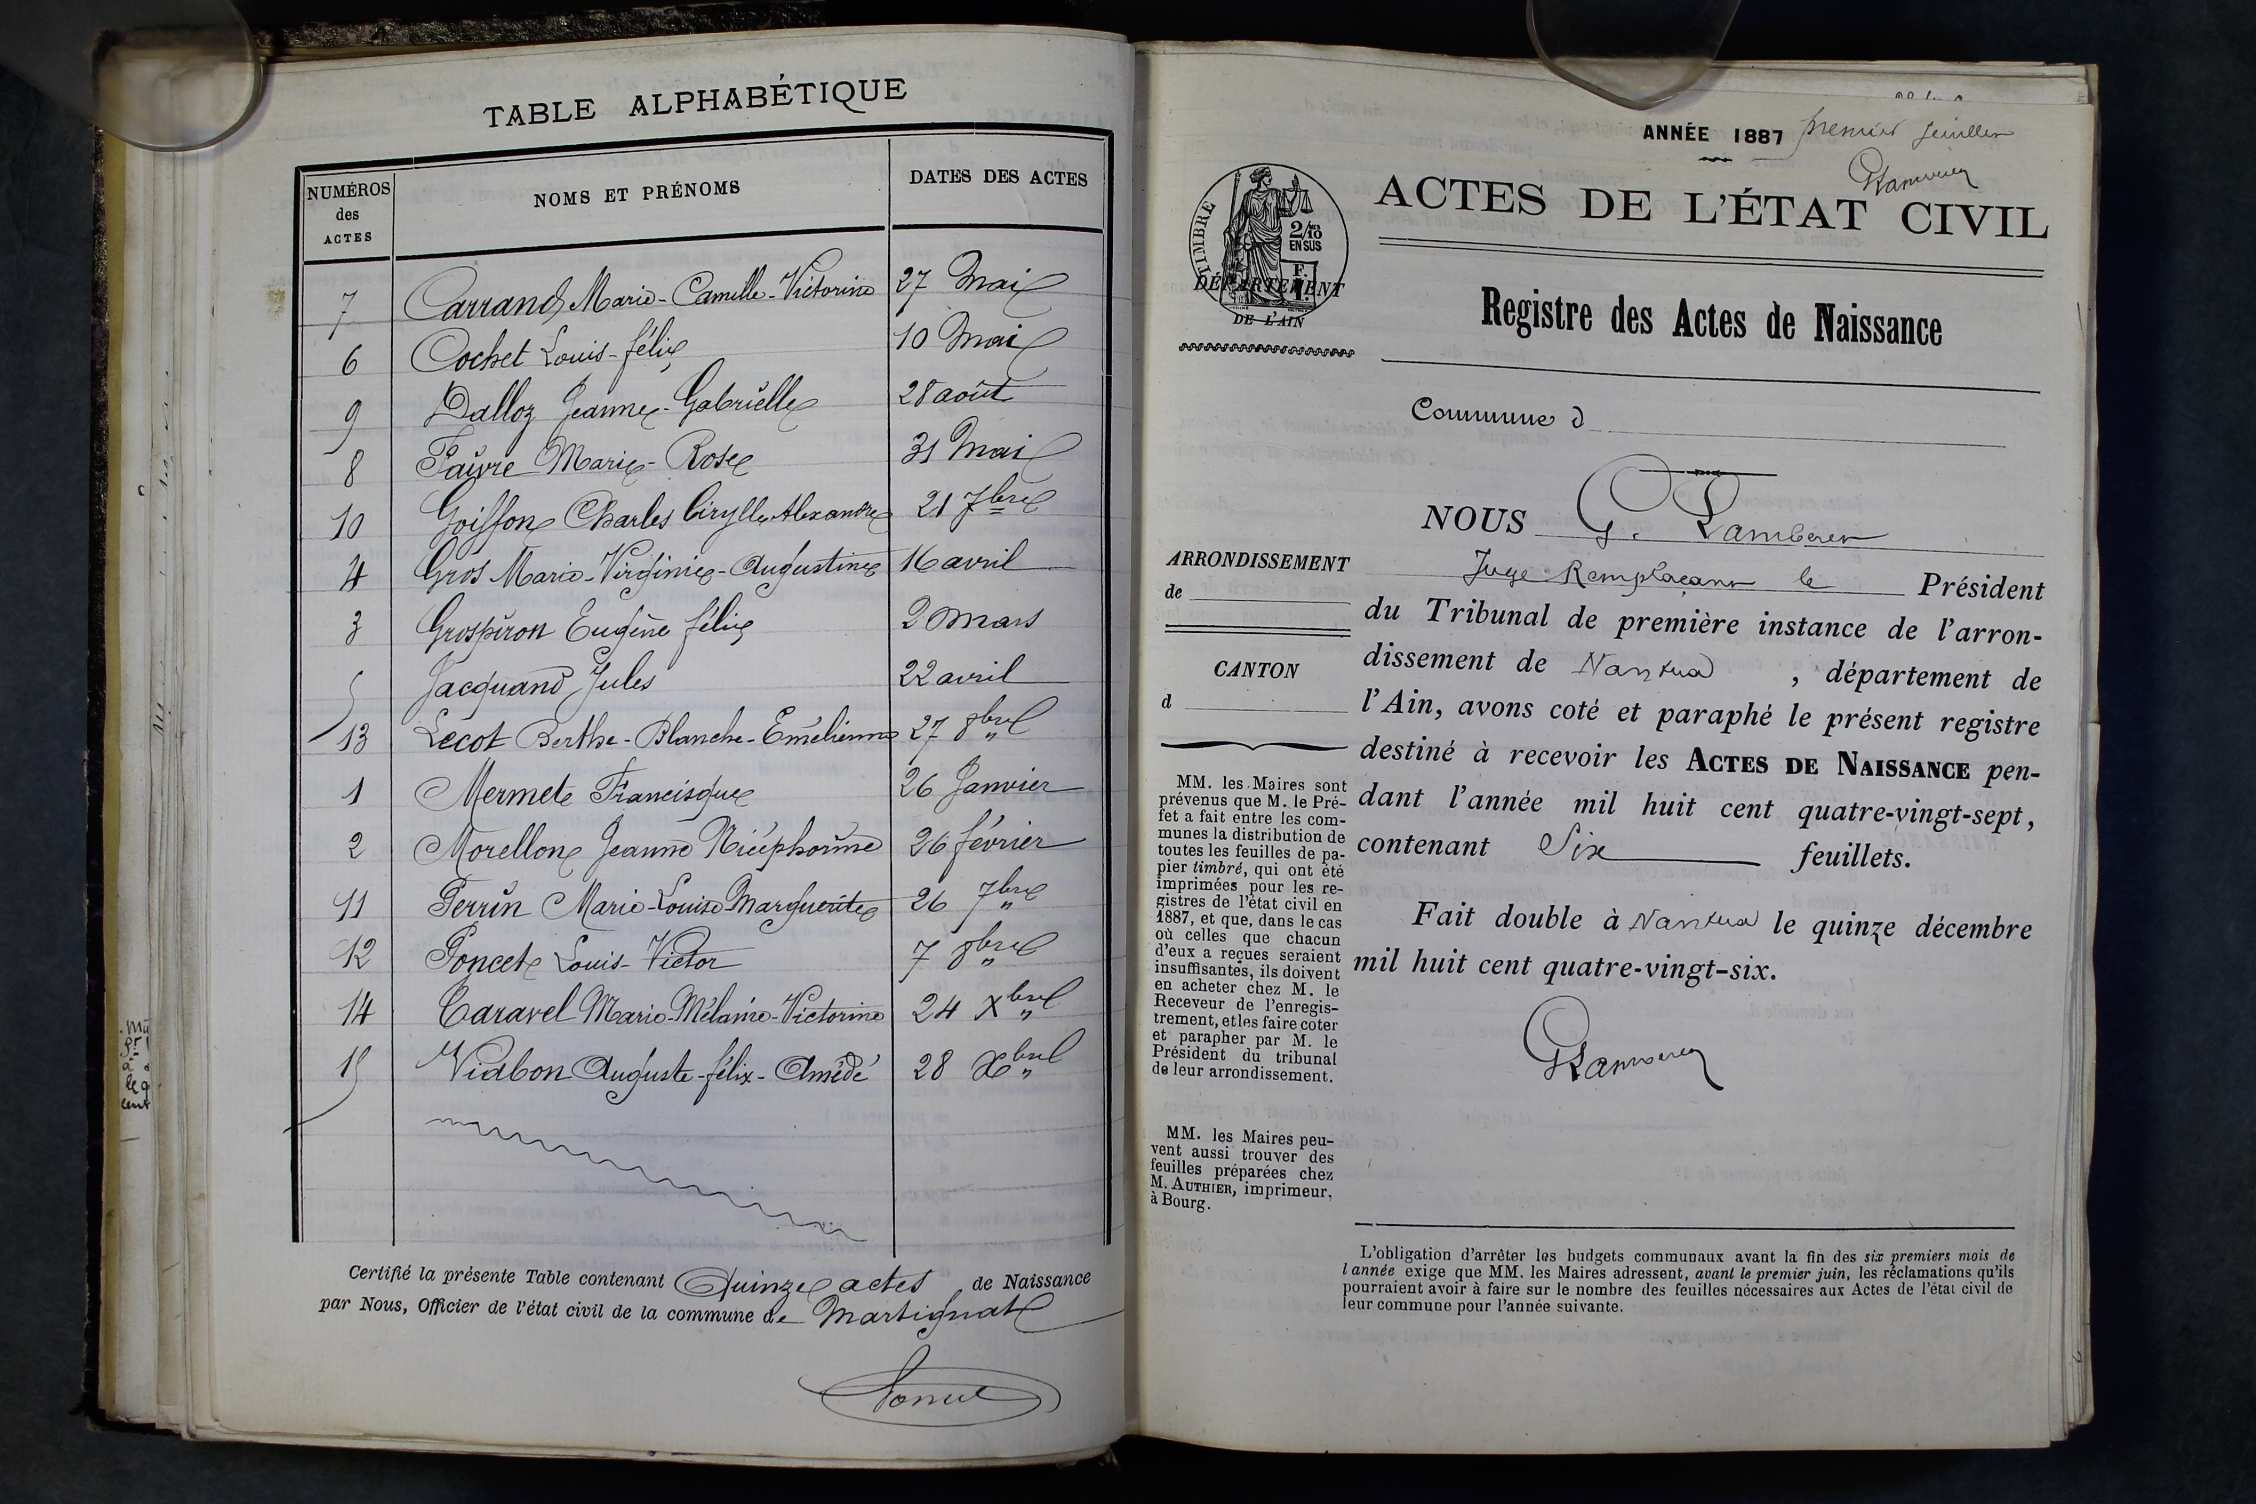 TABLE ALPHABÉTIQUE
NUMÉROS des ACTES
NOMS ET PRÉNOMS
DATES DES ACTES
7 Carrand Marie-Camille-Victorine 27 Mai
6 Cochet Louis-félix 10 Mai
9 Dalloz Jeanne-Gabrielle 28 août
8 Faivre Marie-Rose 31 Mai
10 Goiffon Charles Cirylle Alexandre 21 7bre
4 Gros Marie-Virginie-Augustine 16 avril
3 Grospiron Eugène félix 2 Mars
5 Jacquand Jules 22 avril
13 Lecot Berthe-Blanche-Emélienne 27 8bre
1 Mermet Francisque 26 Janvier
2 Morellon Jeanne Nicéphorine 26 février
11 Perrin Marie-Louise-Marguerite 26 7bre
12 Poncet Louis-Victor 7 8bre
14 Caravel Marie-Mélanie-Victorine 24 Xbre
15 Viabon Auguste-félix-Amédé 28 Xbre
Certifié la présente Table contenant Quinze actes de Naissance
par Nous, Officier de l'état civil de la commune de Martignat
ANNÉE 1887 premier feuillet
TIMBRE
2/10
EN SUS
DÉPARTEMENT
DE L'AIN
ACTES DE L'ÉTAT CIVIL
Registre des Actes de Naissance
Commune d
NOUS G. Lamberet
Juge Remplaçant le Président
du Tribunal de première instance de l'arron-
dissement de Nantua, département de
l'Ain, avons coté et paraphé le présent registre
destiné à recevoir les ACTES DE NAISSANCE pen-
dant l'année mil huit cent quatre-vingt-sept,
contenant Six feuillets.
Fait double à Nantua le quinze décembre
mil huit cent quatre-vingt-six.
ARRONDISSEMENT
de
CANTON
d
MM. les Maires sont
prévenus que M. le Pré-
fet a fait entre les com-
munes la distribution de
toutes les feuilles de pa-
pier timbré, qui ont été
imprimées pour les re-
gistres de l'état civil en
1887, et que, dans le cas
où celles que chacun
d'eux a reçues seraient
insuffisantes, ils doivent
en acheter chez M. le
Receveur de l'enregis-
trement, et les faire coter
et parapher par M. le
Président du tribunal
de leur arrondissement.
MM. les Maires peu-
vent aussi trouver des
feuilles préparées chez
M. AUTHIER, imprimeur,
à Bourg.
L'obligation d'arrêter les budgets communaux avant la fin des six premiers mois de
l'année exige que MM. les Maires adressent, avant le premier juin, les réclamations qu'ils
pourraient avoir à faire sur le nombre des feuilles nécessaires aux Actes de l'état civil de
leur commune pour l'année suivante.